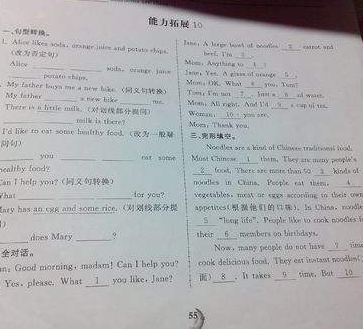 能力拓展 10
一、句型转换。
1. Alice likes soda, orange juice and potato chips.
(改为否定句)
Alice ____ ____ soda, orange juice
____ potato chips.
My father buys me a new bike. (同义句转换)
My father ____ a new bike ____ me.
There is a little milk. (对划线部分提问)
____ ____ milk is there?
I'd like to eat some healthy food. (改为一般疑
问句)
____ you ____ ____ eat some
healthy food?
Can I help you? (同义句转换)
What ____ ____ ____ for you?
Mary has an egg and some rice. (对划线部分提
does Mary ____?
全对话。
Good morning, madam! Can I help you?
Yes, please. What 1 you like, Jane?
Jane: A large bowl of noodles 2 carrot and
beef, I'm 3 .
Mom: Anything to 4 ?
Jane: Yes. A glass of orange 5 .
Mom: OK. What 6 you, Tom?
Tom: I'm not 7 . Just a 8 of water.
Mom: All right. And I'd 9 a cup of tea.
Woman: 10 you are.
Mom: Thank you.
三、完形填空。
Noodles are a kind of Chinese traditional food.
Most Chinese 1 them. They are many people's
2 food. There are more than 50 3 kinds of
noodles in China. People eat them, 4 ,
vegetables, meat or eggs according to their own
appetites(根据他们的口味). In China, noodles
5 "long life". People like to cook noodles for
their 6 members on birthdays.
Now, many people do not have 7 time
cook delicious food. They eat instant noodles(
面) 8 . It takes 9 time. But 10
55